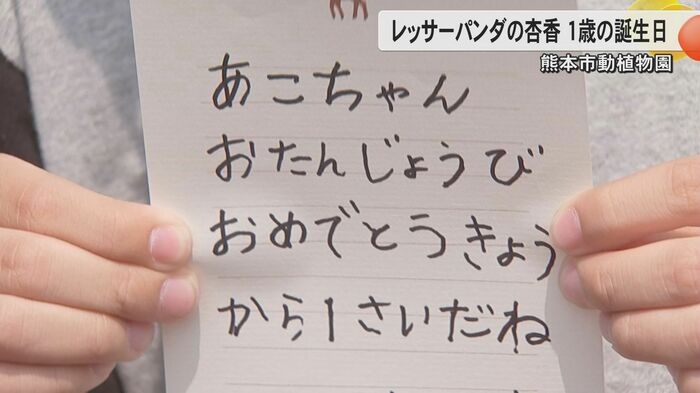 レッサーパンダの杏香 1歳の誕生日
熊本市動植物園
あこちゃん
おたんじょうび
おめでとうきょう
から1さいだね